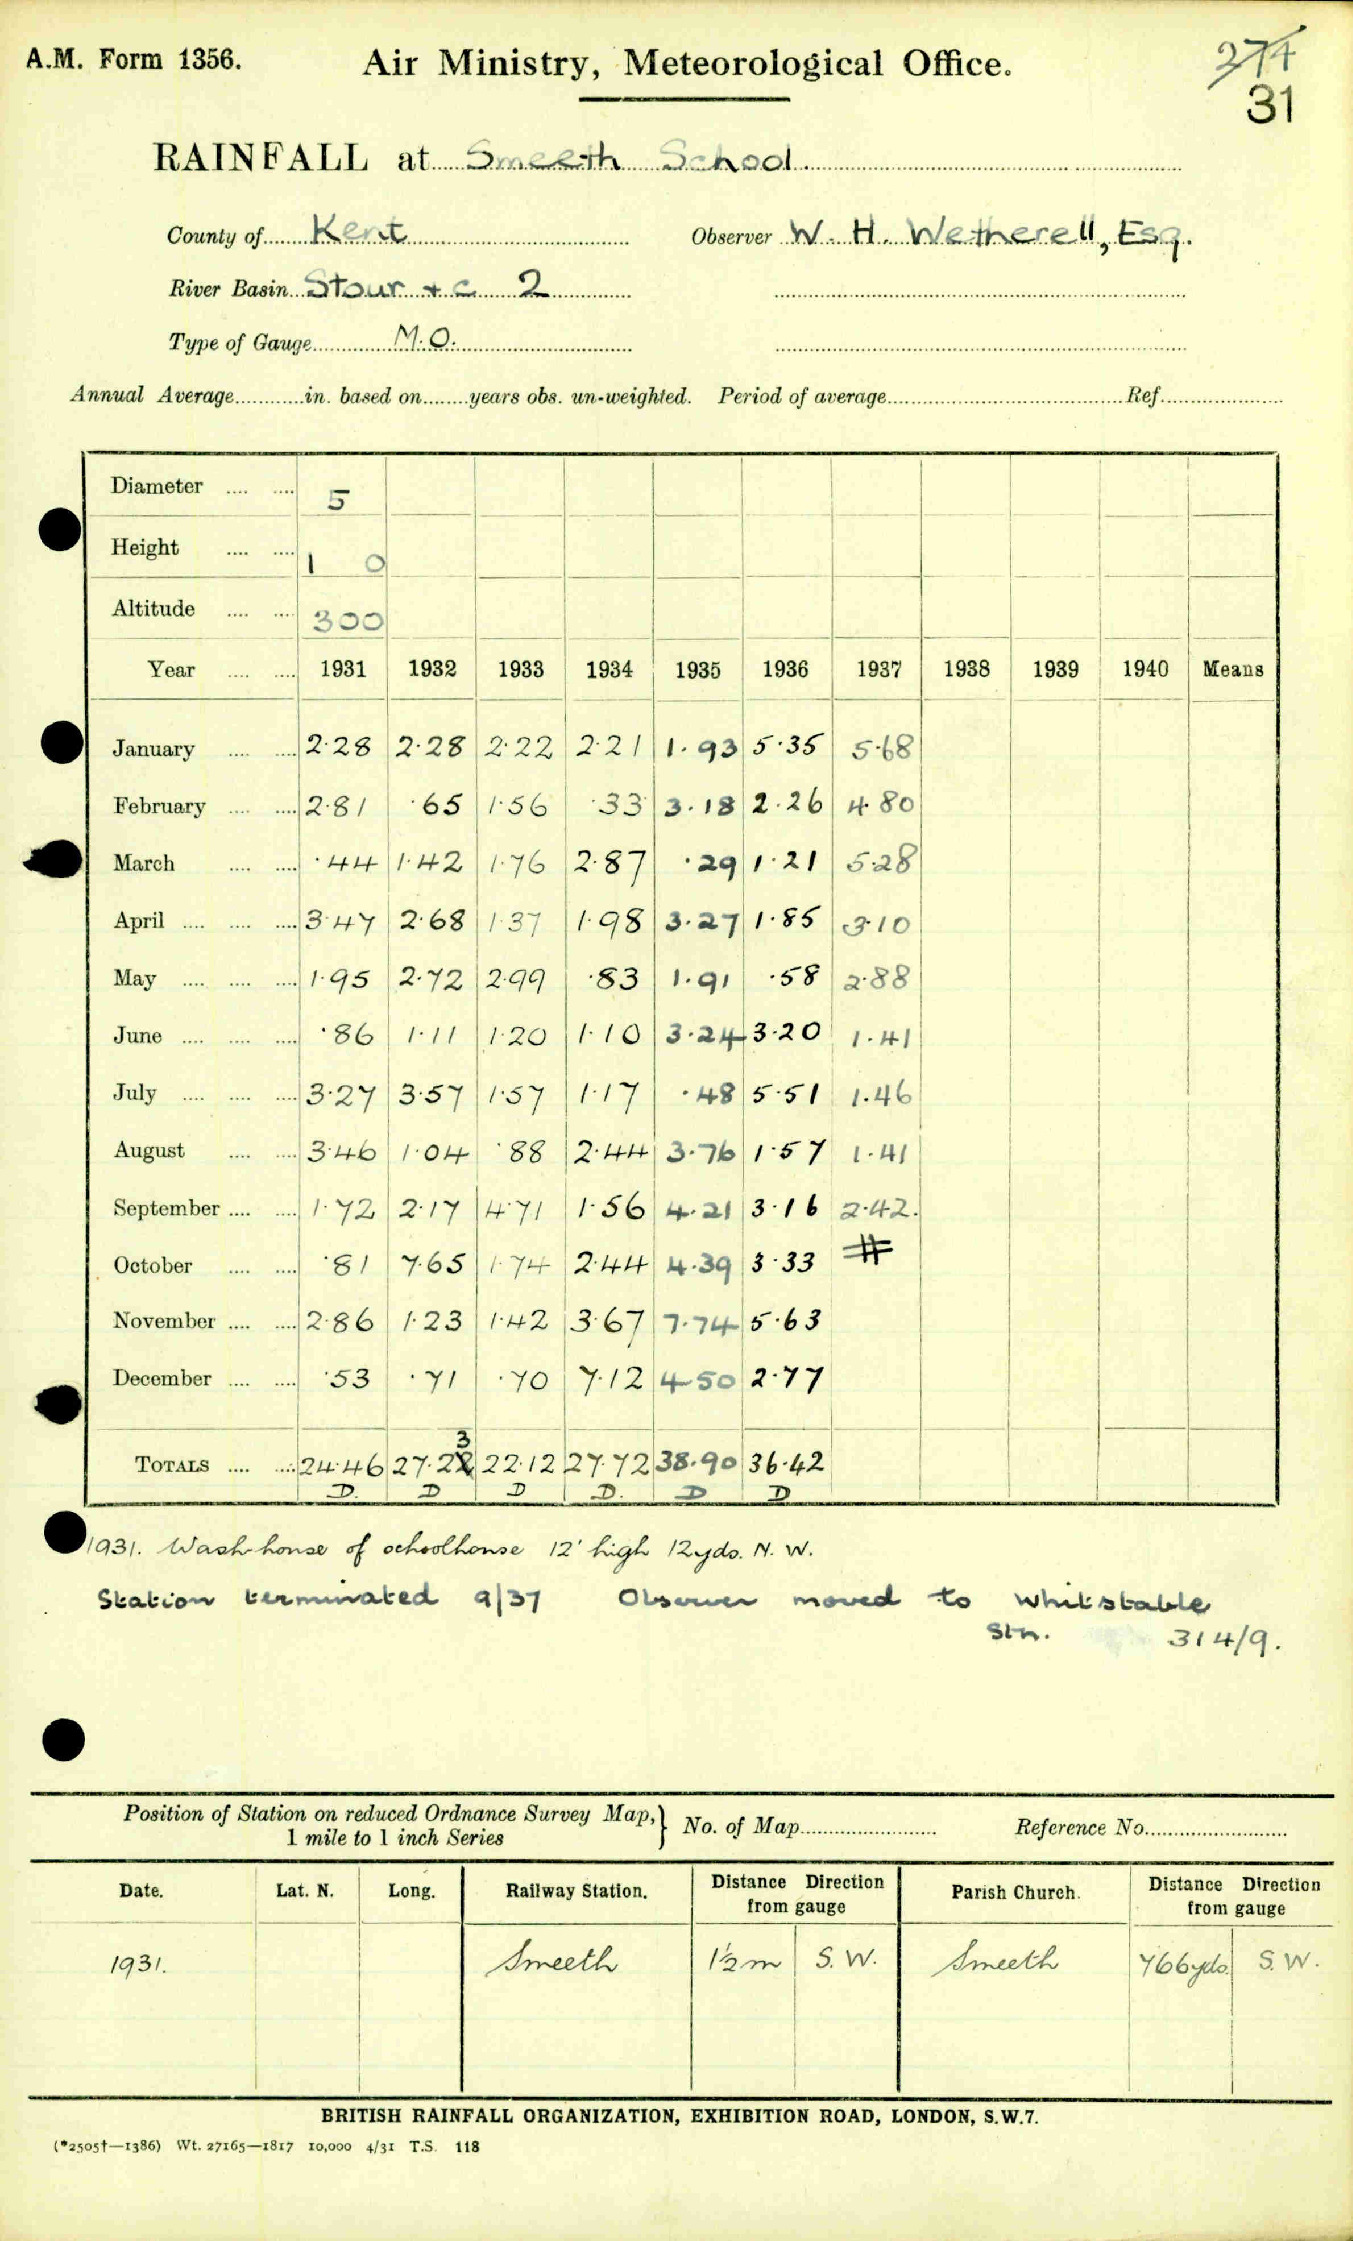 A.M. Form 1356.
Air Ministry, Meteorological Office.
274
31
RAINFALL at Smeeth School
County of Kent Observer W. H. Wetherell, Esq.
River Basin Stour + c 2
Type of Gauge M.O.
Annual Average in. based on years obs. un-weighted. Period of average Ref.
Diameter .... .... 5
Height .... .... 1 0
Altitude .... .... 300
Year .... .... 1931 1932 1933 1934 1935 1936 1937 1938 1939 1940 Means
January .... .... 2·28 2·28 2·22 2·21 1·93 5·35 5·68
February .... .... 2·81 ·65 1·56 ·33 3·18 2·26 4·80
March .... .... ·44 1·42 1·76 2·87 ·29 1·21 5·28
April .... .... .... 3·47 2·68 1·37 1·98 3·27 1·85 3·10
May .... .... .... 1·95 2·72 2·99 ·83 1·91 ·58 2·88
June .... .... .... ·86 1·11 1·20 1·10 3·24 3·20 1·41
July .... .... .... 3·27 3·57 1·57 1·17 ·48 5·51 1·46
August .... .... 3·46 1·04 ·88 2·44 3·76 1·57 1·41
September .... .... 1·72 2·17 4·71 1·56 4·21 3·16 2·42.
October .... .... ·81 7·65 1·74 2·44 4·39 3·33
November .... .... 2·86 1·23 1·42 3·67 7·74 5·63
December .... .... ·53 ·71 ·70 7·12 4·50 2·77
3
TOTALS .... .... 24·46 27·22 22·12 27·72 38·90 36·42
D. D D D. D D
1931. Wash-house of schoolhouse 12' high 12yds. N. W.
Station terminated 9/37 Observer moved to Whitstable
Stn. 314/9.
Position of Station on reduced Ordnance Survey Map,} No. of Map Reference No.
1 mile to 1 inch Series
Date. Lat. N. Long. Railway Station. Distance Direction from gauge Parish Church. Distance Direction from gauge
1931. Smeeth 1½m S. W. Smeeth 766yds. S. W.
BRITISH RAINFALL ORGANIZATION, EXHIBITION ROAD, LONDON, S.W.7.
(*2505†—1386) Wt. 27165—1817 10,000 4/31 T.S. 118